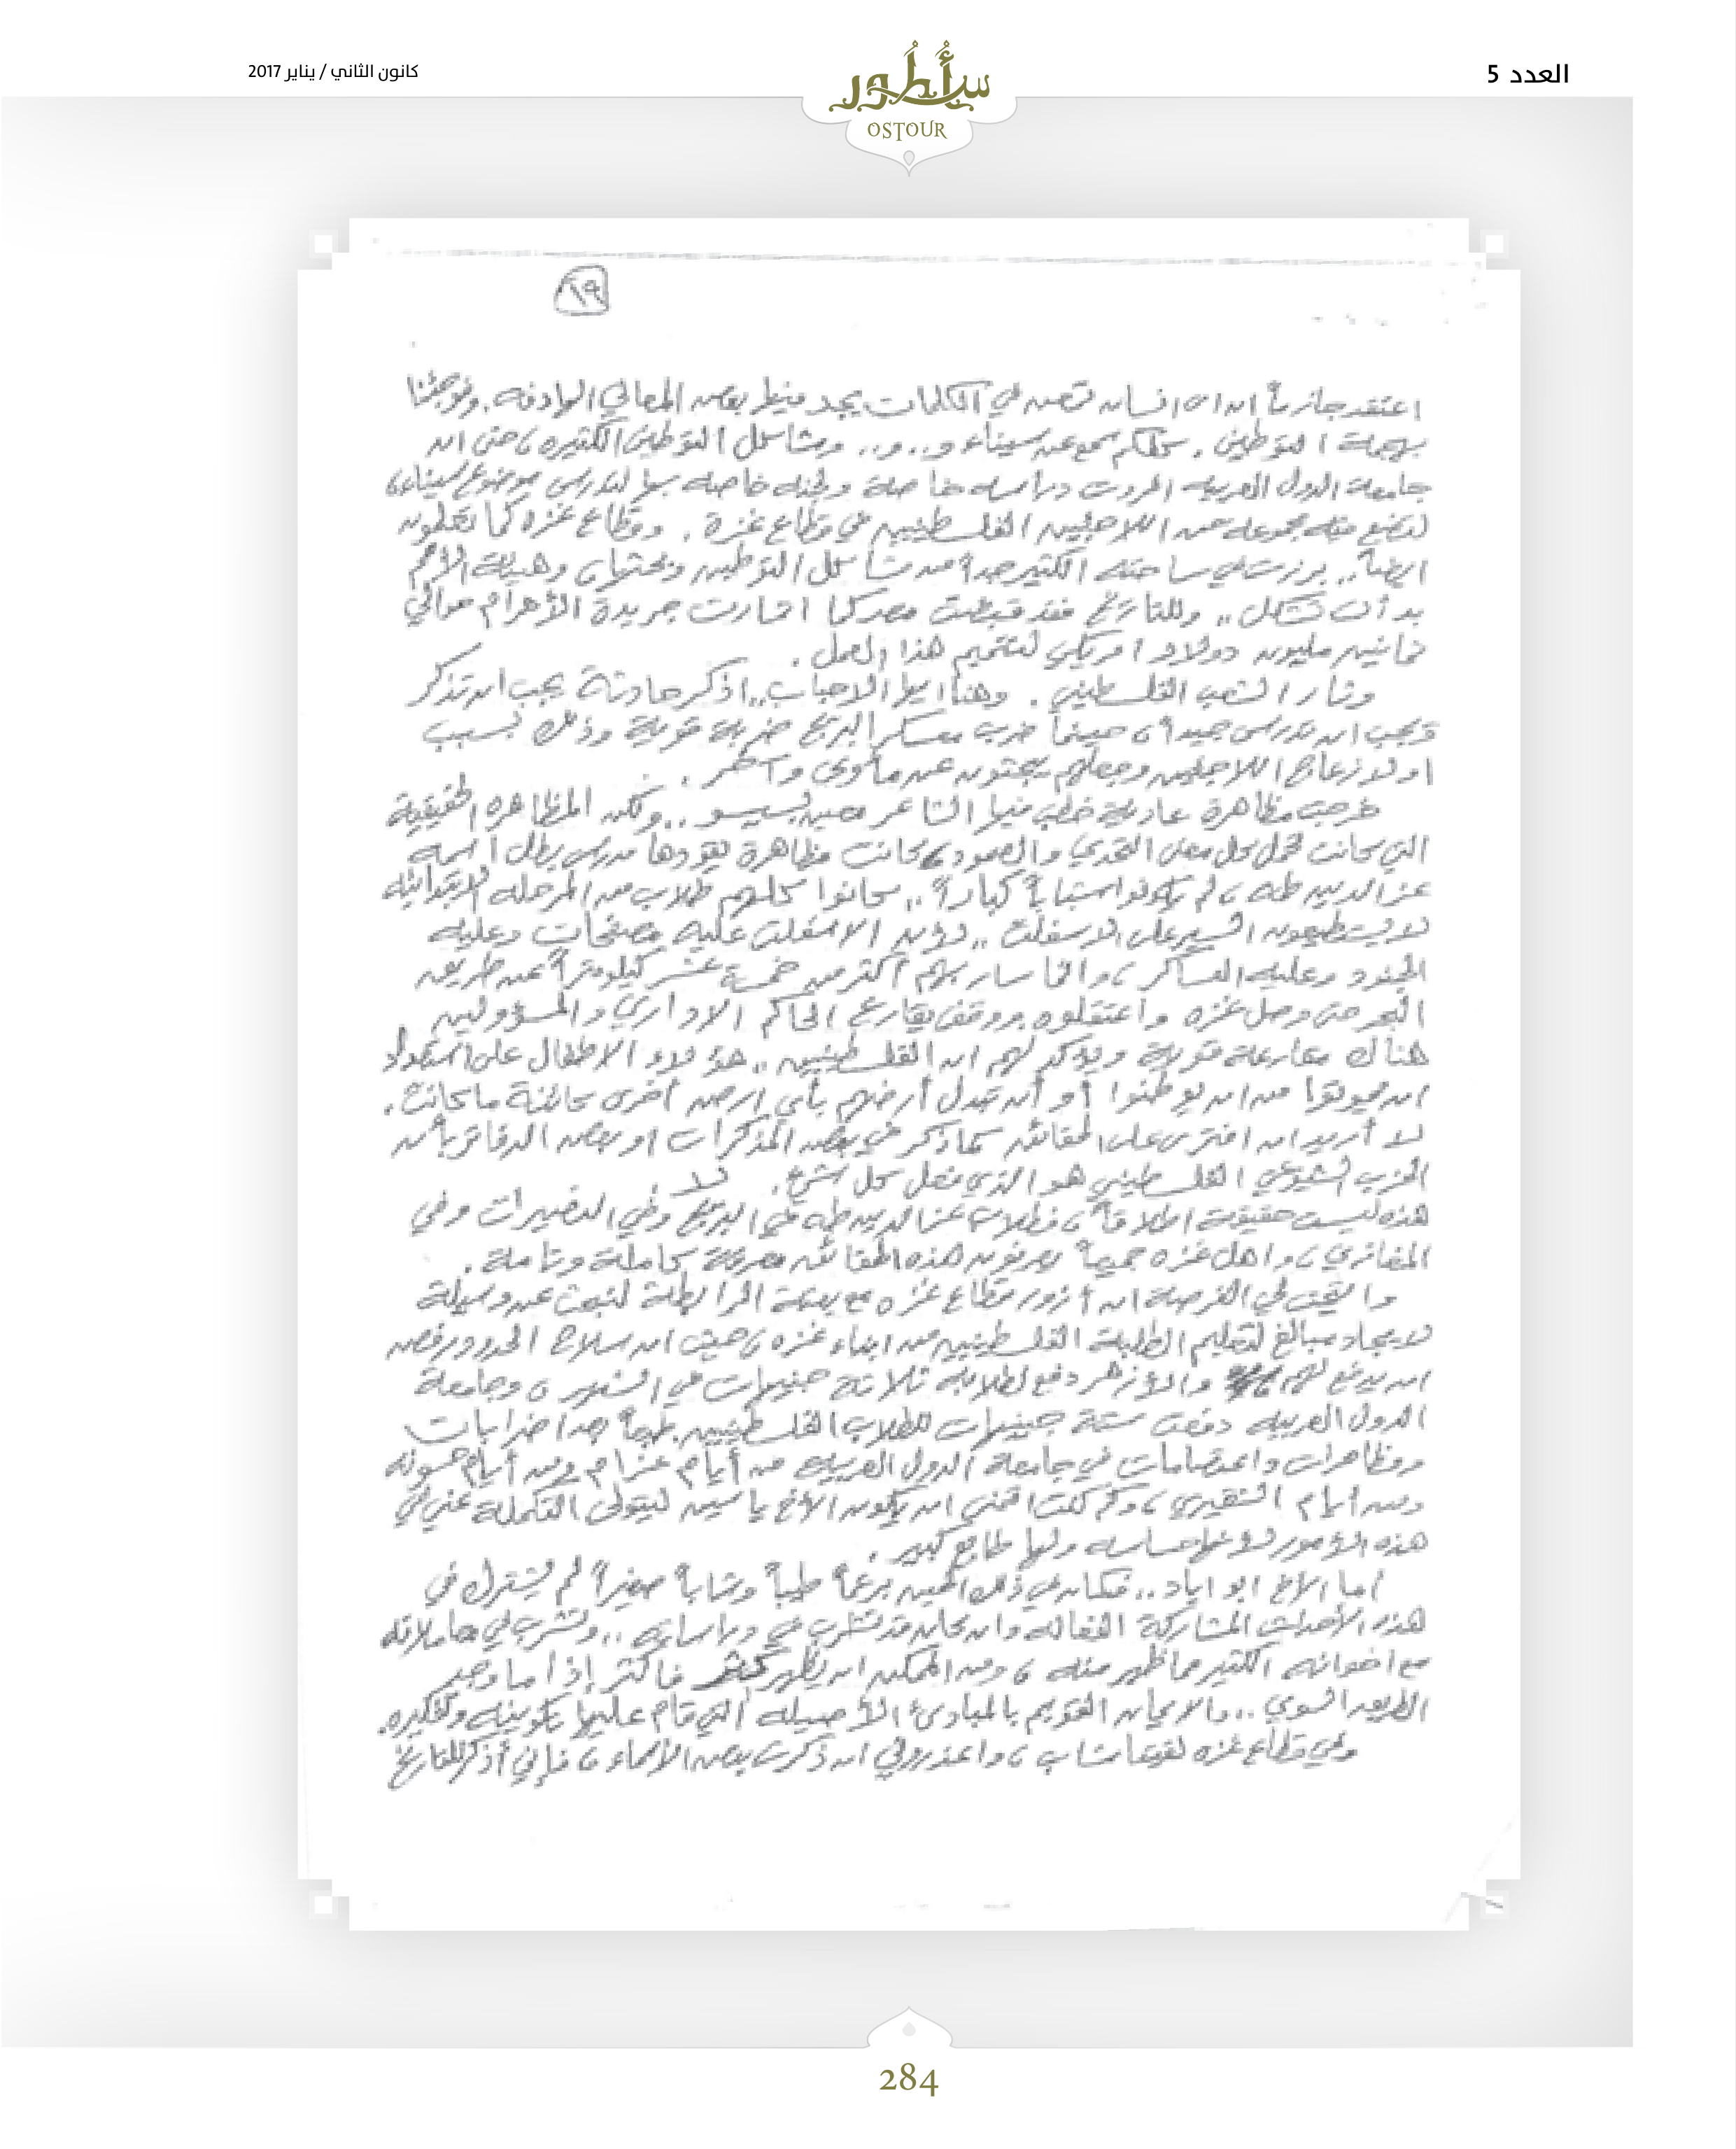 العدد 5
كانون الثاني / يناير 2017
أسطور
OSTOUR
١٩
اعتقد جازماً ان اي انسان تمعن في الكلمات يجد فيها بعض المعاني الهادفه. وفوجئنا
بهجمة التوطين. كلكم سمع عن سيناء و.. و.. ومشاكل التوطين الكثيره، حتى ان
جامعة الدول العربيه افردت دراسه خاصة ولجنه خاصه بها لتدرس موضوع سيناء،
لتضع فيه مجموعه من اللاجئين الفلسطينيين في قطاع غزة. وقطاع غزه كما تعلمون
ايضاً.. برزت في ساحته الكثير جداً من مشاكل التوطين وبحثها، وهيئة الأمم
بدأت تشكل.. وللتاريخ فقد قبضت مصر كما اشارت جريدة الأهرام حوالي
ثمانين مليون دولار امريكي لتتميم هذا العمل.
وثار الشعب الفلسطيني. وهنا ايها الاحباب.. اذكر حادثة يجب ان تذكر
ويجب ان تدرس جيداً، حينما ضرب معسكر البريج ضربة قوية وذلك بسبب
اولا ازعاج اللاجئين وجعلهم يبحثون عن مأوى آخر.
خرجت مظاهرة عادية خطب فيها الشاعر معين بسيسو.. ولكن المظاهره الحقيقية
التي كانت تحمل كل معنى التحدي والصمود كانت مظاهرة يقودها مدرس بطل اسمه
عز الدين طه، لم يكونوا شباباً كباراً.. كانوا كلهم طلاب من المرحله الابتدائيه
لا يستطيعون السير على الاسفلت.. لأن الاسفلت عليه مصفحات وعليه
الجنود وعليه العساكر، وانما سار بهم أكثر من خمسة عشر كيلومتراً عن طريق
البحر حتى وصل غزه واعتقلوه ووقف يقارع الحاكم الاداري والمسؤولين
هناك مقارعة قوية ويؤكد لهم ان الفلسطينيين.. هؤلاء الاطفال على استعداد
ان يموتوا من ان يوطنوا أو أن تبدل أرضهم بأي ارض أخرى كائنة ما كانت.
لا أريد ان افتري على الحقائق كما ذكر في بعض المذكرات او بعض الدفاتر بأن
الحزب الشيوعي الفلسطيني هو الذي فعل كل شيء. لا
هذه ليست حقيقة اطلاقاً، فطلاب عز الدين طه في البريج وفي النصيرات وفي
المغازي، واهل غزه جميعاً يعرفون هذه الحقائق معرفة كاملة وتامة.
واتيحت لي الفرصه ان أزور قطاع غزه مع بعثة الرابطة لنبحث عن وسيلة
لايجاد مبالغ لتعليم الطلبة الفلسطينيين من ابناء غزه، حيث ان سلاح الحدود رفض
ان يدفع لهم والأزهر دفع لطلابه ثلاثة جنيهات في الشهر، وجامعة
الدول العربيه دفعت ستة جنيهات للطلاب الفلسطينيين. طبعاً بعد اضرابات
ومظاهرات واعتصامات في جامعة الدول العربيه من أيام عزام ومن أيام حسونه
ومن ايام الشقيري، وكم كنت اتمنى ان يكون الأخ ياسين ليتولى التكملة عني في
هذه الأمور لأنها حساسه ولها طابع كبير.
أما الاخ ابو اياد.. فكان في ذلك الحين برعماً طيباً وشاباً صغيراً لم يشترك في
هذه الأحداث المشاركة الفعاله وان كان قد تشرب في دراساته.. وتشرب في معاملاته
مع اخوانه الكثير مما ظهر منه، ومن الممكن ان يظهر أكثر فأكثر إذا ما وجد
الطريق السوي.. والايمان القويم بالمبادئ الأصيله التي قام عليها تكوينه وتفكيره.
وفي قطاع غزه لقينا شباب، واعذروني ان ذكرت بعض الأسماء، فإني أذكر للتاريخ
284